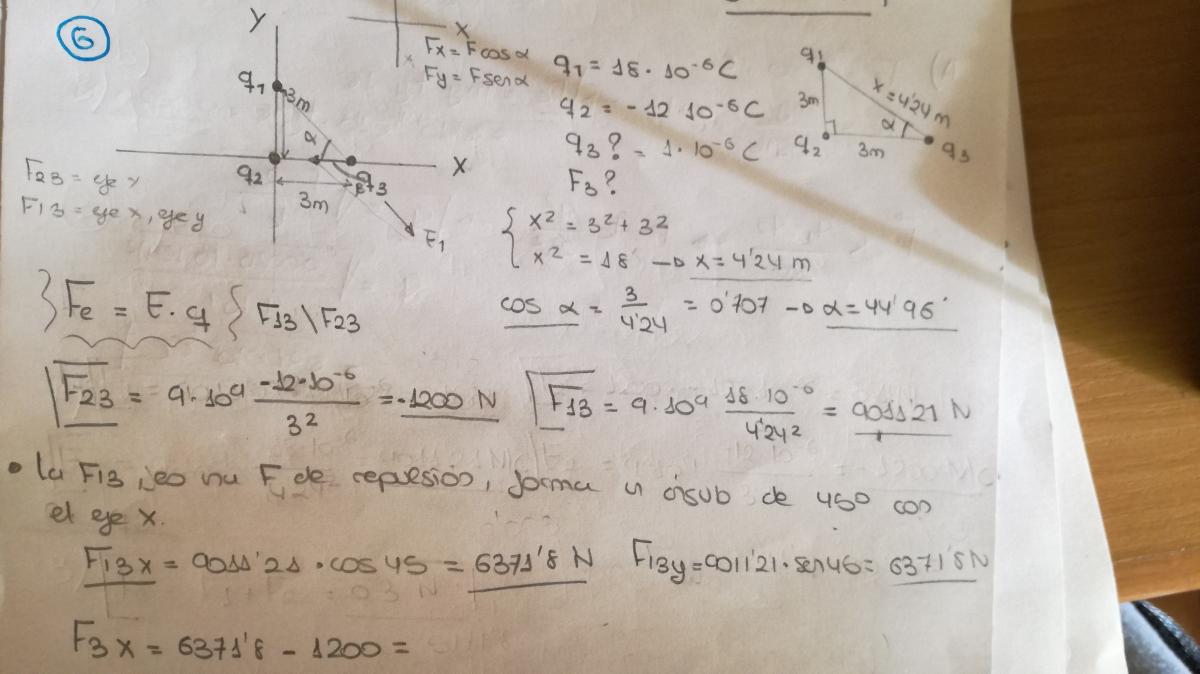 6
Y
X
Fx = F cos α
Fy = F sen α
q1
3m
α
q2
q3
X
3m
F1
F23 = eje x
F13 = eje x, eje y
q1 = 18 · 10-6 C
q2 = - 12 10-6 C
q3? - 1 · 10-6 C
F3?
q1
3m
x = 4'24 m
α
q2
3m
q3
x2 = 32 + 32
x2 = 18 → x = 4'24 m
cos α = 3/4'24 = 0'707 → α = 44'96°
Fe = E · q F13 \ F23
F23 = 9 · 109 -12·10-6/32 = -1200 N
F13 = 9 · 109 18 · 10-6/4'242 = 9011'21 N
• La F13, F de repulsión, forma de 45º con
el eje X.
F13x = 9011'21 · cos 45 = 6371'8 N
F13y = 9011'21 · sen 45 = 6371'8 N
F3x = 6371'8 - 1200 =